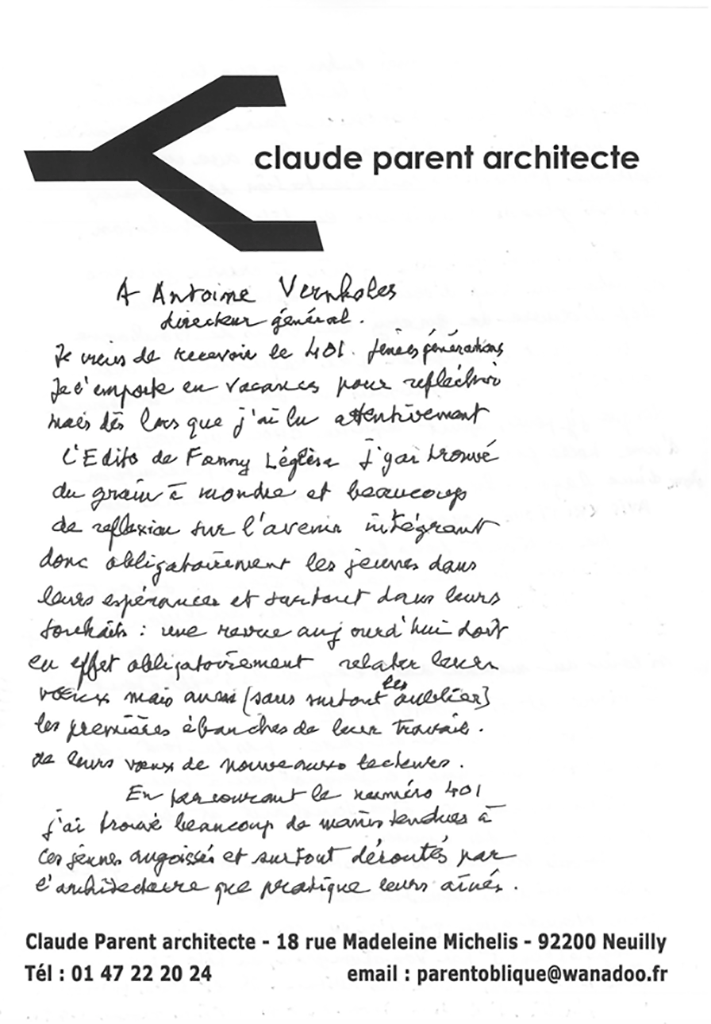 claude parent architecte
A Antoine Vernholes
directeur général.
Je viens de recevoir le 401. jeunes générations
Je l'emporte en vacances pour refléchir
mais dès lors que j'ai lu attentivement
l'Edito de Fanny Léglise j'y ai trouvé
du grain à moudre et beaucoup
de reflexion sur l'avenir intégrant
donc obligatoirement les jeunes dans
leurs espérances et surtout dans leurs
souhaits : une revue aujourd'hui doit
en effet obligatoirement relater leurs
voeux mais aussi (sans surtout les oublier)
les premières ébauches de leur travail.
de leurs voeux de nouveaux lecteurs.
En parcourant le numéro 401
j'ai trouvé beaucoup de mains tendues à
ces jeunes angoissés et surtout déroutés par
l'architecture que pratique leurs aînés.
Claude Parent architecte - 18 rue Madeleine Michelis - 92200 Neuilly
Tél : 01 47 22 20 24 email : parentoblique@wanadoo.fr